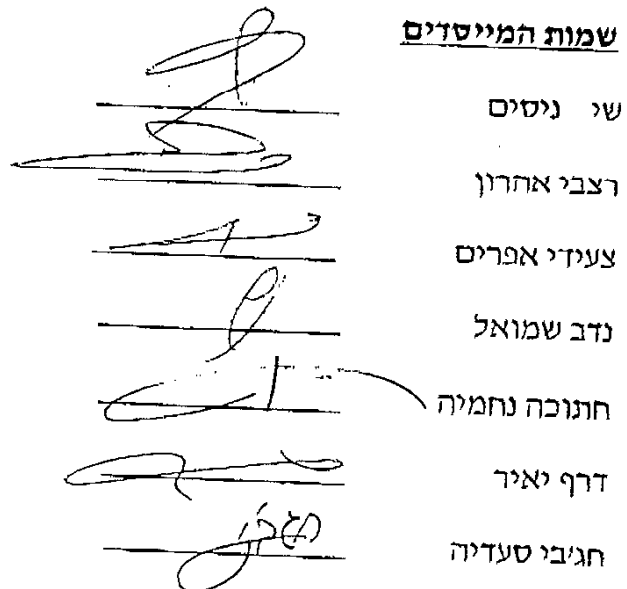 שמות המייסדים
שי ניסים
רצבי אהרון
צעידי אפרים
נדב שמואל
חתוכה נחמיה
דרף יאיר
חג'בי סעדיה